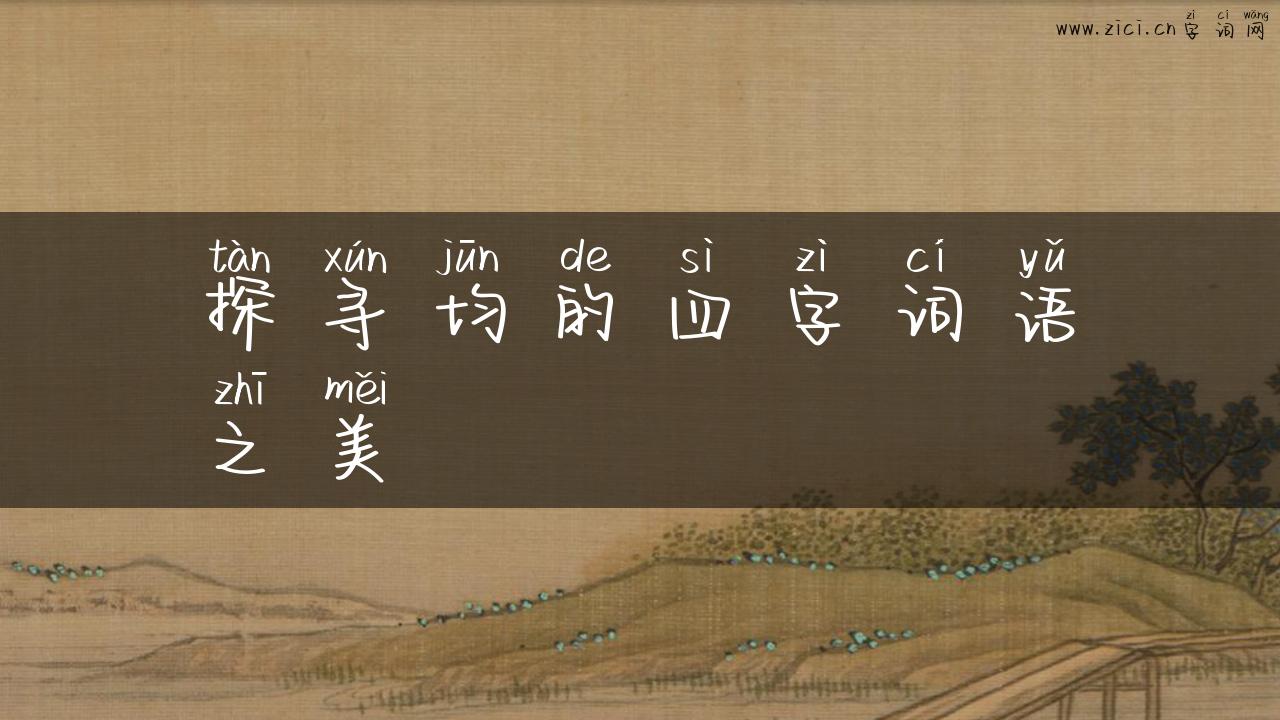 zì cí wǎng
www.zici.cn字词网
tàn xún jūn de sì zì cí yǔ
探寻均的四字词语
zhī měi
之美